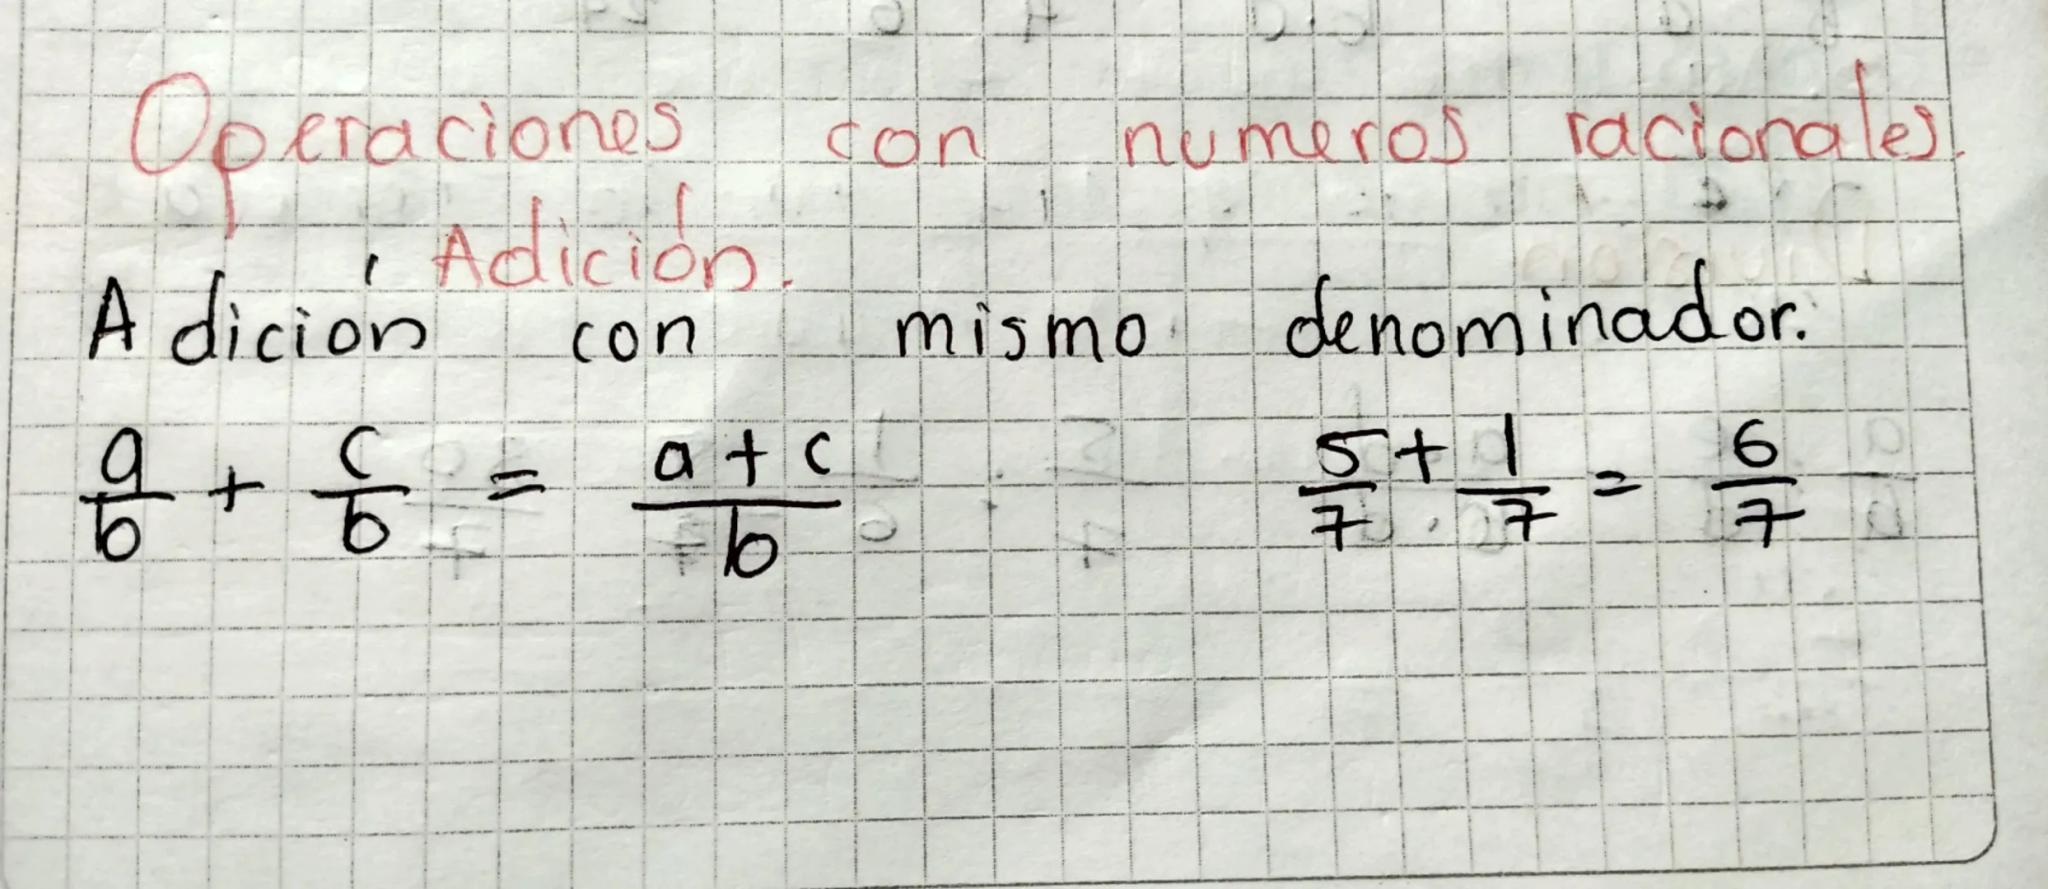 Operaciones con numeros racionales.
Adición.
Adición con mismo denominador.
a/b + c/b = a + c/b 5/7 + 1/7 = 6/7